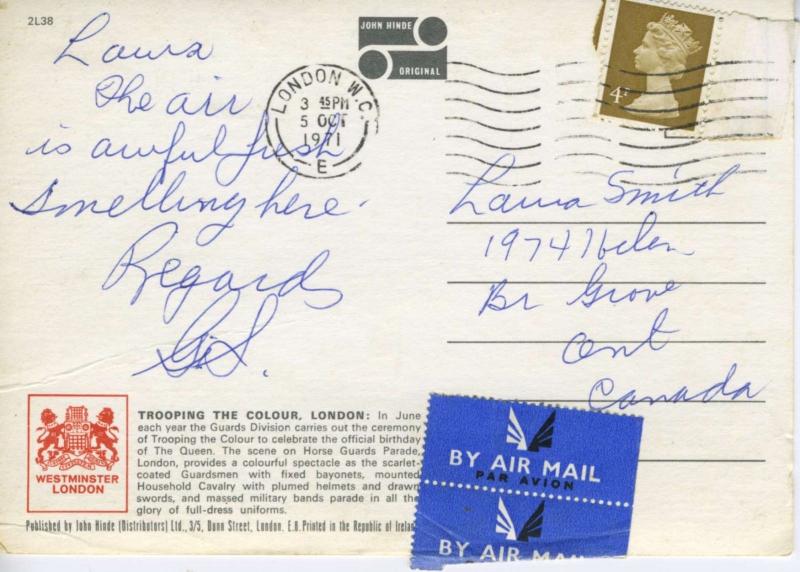 2L38
JOHN HINDE
ORIGINAL
LONDON W.C.
3 45PM
5 OCT
1971
E
4P
Laura
The air
is awful fresh
smelling here.
Regards
G.S.
Laura Smith
1974 Helen
Br Grove
Ont
Canada
WESTMINSTER
LONDON
TROOPING THE COLOUR, LONDON: In June
each year the Guards Division carries out the ceremony
of Trooping the Colour to celebrate the official birthday
of The Queen. The scene on Horse Guards Parade,
London, provides a colourful spectacle as the scarlet-
coated Guardsmen with fixed bayonets, mounted
Household Cavalry with plumed helmets and drawn
swords, and massed military bands parade in all the
glory of full-dress uniforms.
Published by John Hinde (Distributors) Ltd., 3/5, Dunn Street, London. E.8. Printed in the Republic of Ireland
BY AIR MAIL
PAR AVION
BY AIR MAIL